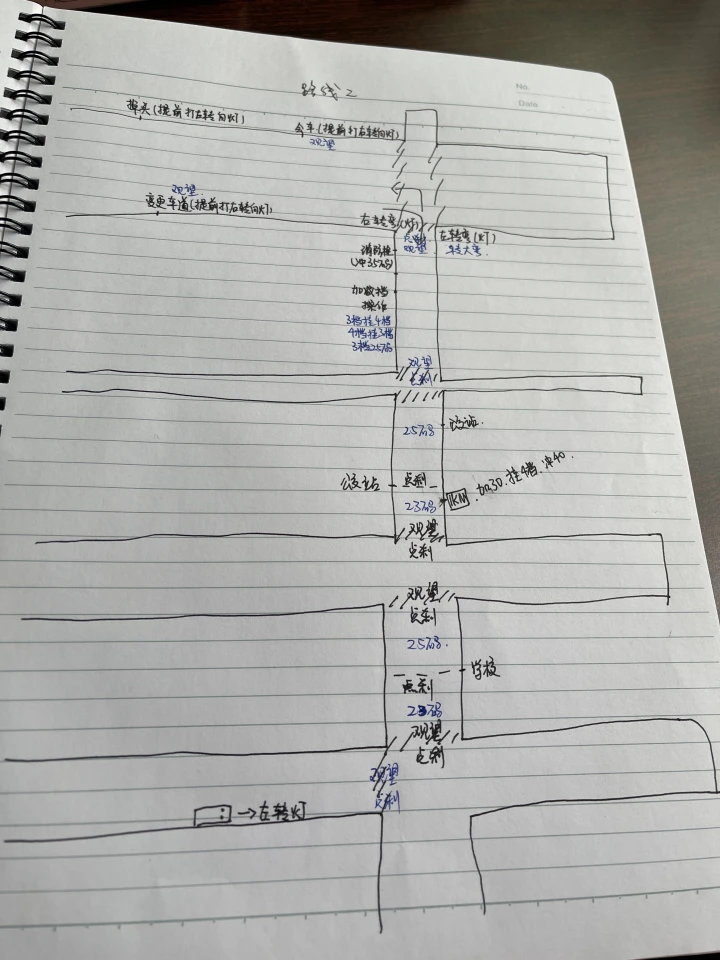 路线2
No.
Date
掉头(提前打左转向灯)
会车(提前打左转向灯)
观望
观望
变更车道(提前打右转向灯)
右转弯(灯)
点刹
观望
左转弯(灯)
转大弯.
消防栓
(1中35码)
加减档
操作
3档挂4档
4档挂3档
3档25码
观望
点刹
25码
公交站.
公交站
点刹
23码
1KM
加30.挂4档.冲40.
观望
点刹
观望
点刹
25码.
学校
点刹
23码
观望
点刹
观望
点刹
→左转灯